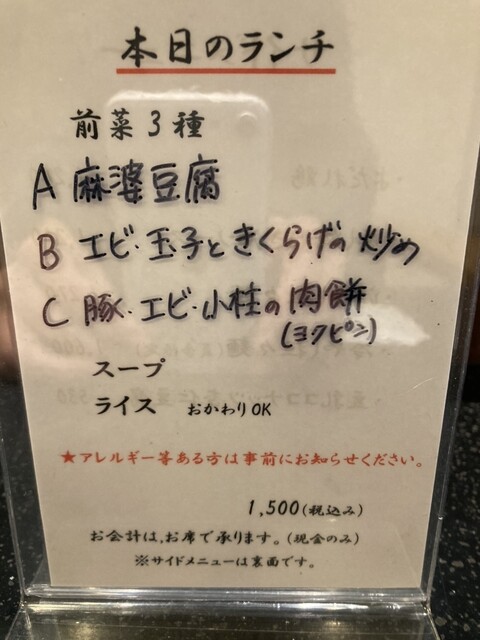 本日のランチ
前菜3種
A 麻婆豆腐
B エビ・玉子ときくらげの炒め
C 豚・エビ・小柱の肉餅
(ヨクピン)
スープ
ライス おかわりOK
★アレルギー等ある方は事前にお知らせください。
1,500(税込み)
お会計は、お席で承ります。(現金のみ)
※サイドメニューは裏面です。